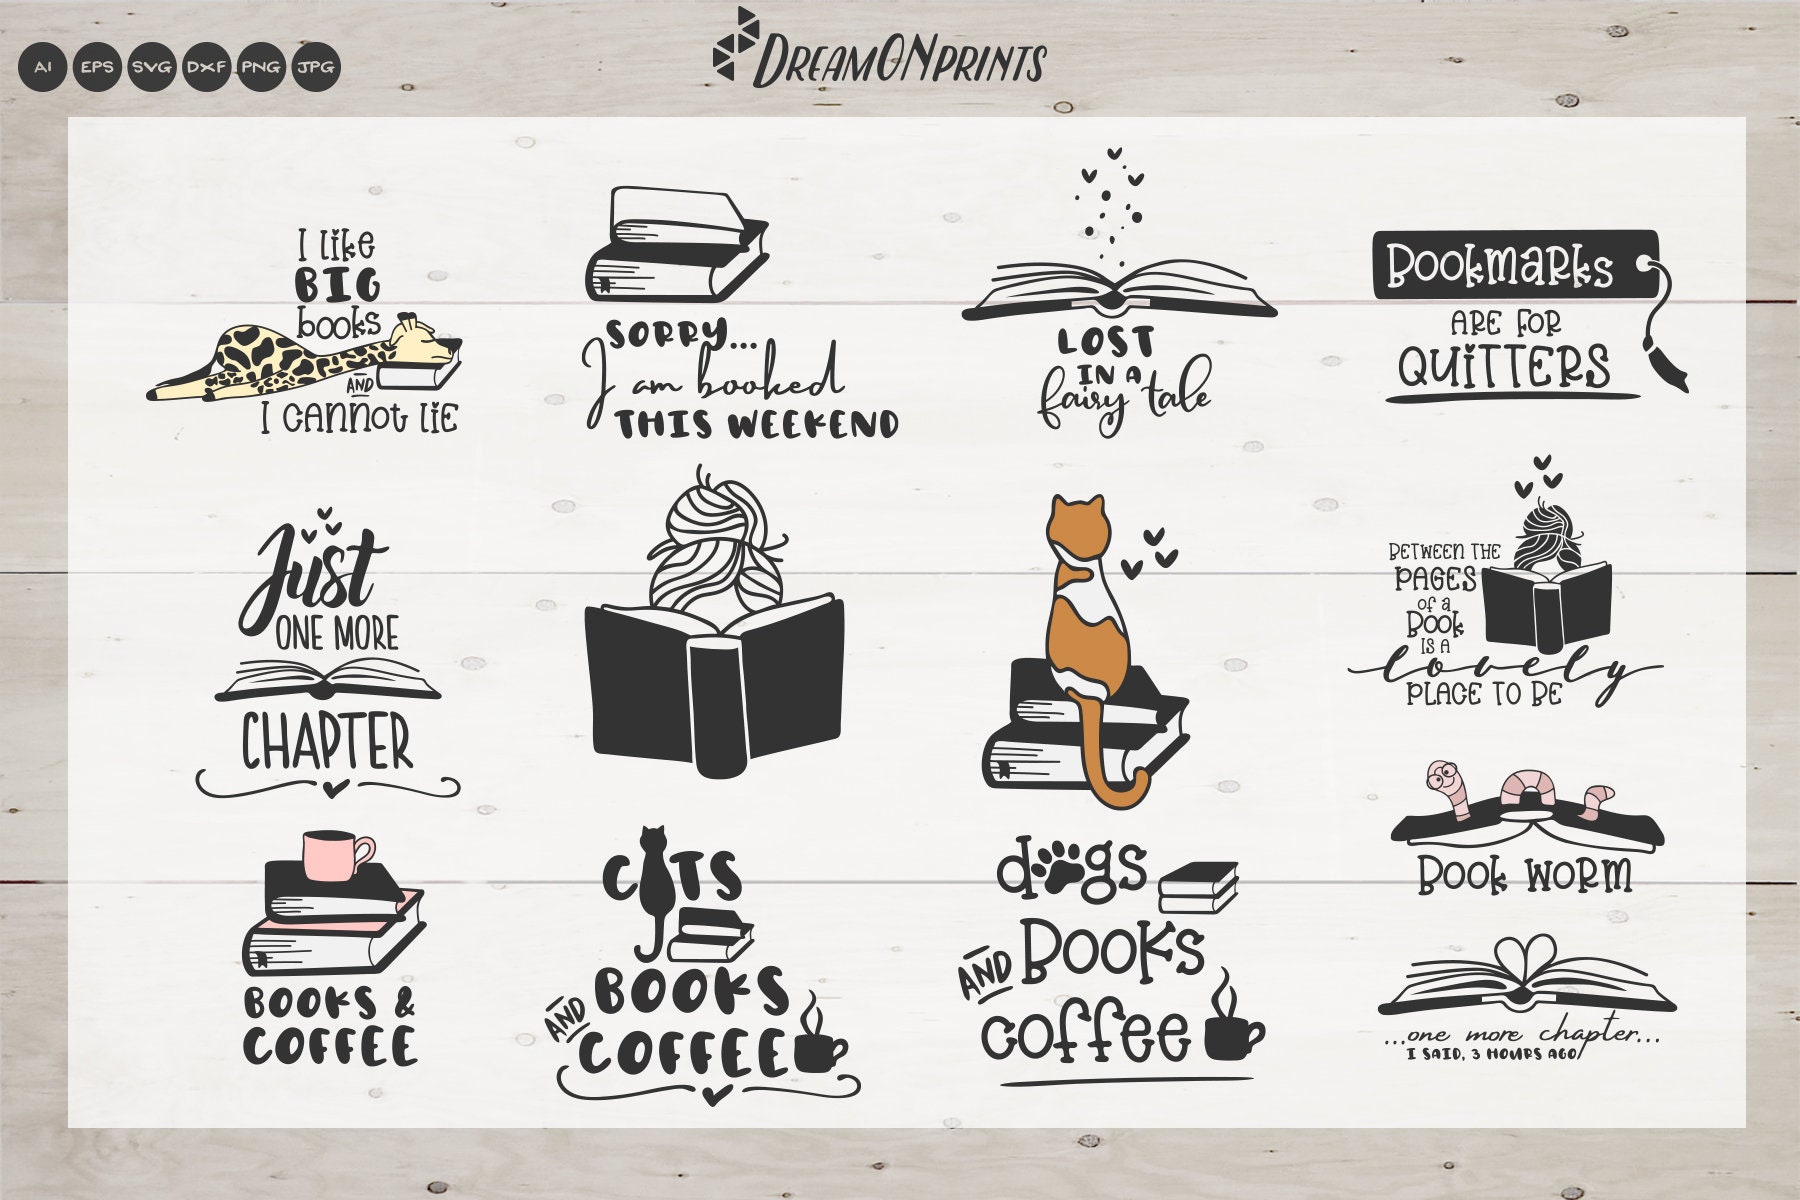 AI EPS SVG DXF PNG JPG
DREAMONPRINTS
I like
BIG
books
AND
I CANNOT LIE
SORRY...
I am booked
THIS WEEKEND
LOST
IN A
fairy tale
Bookmarks
ARE FOR
QUITTERS
Just
ONE MORE
CHAPTER
BETWEEN THE
PAGES
of a
Book
IS A
lovely
PLACE TO BE
Book worm
BOOKS &
COFFEE
CATS
BOOKS
AND
COFFEE
dogs
AND Books
coffee
...one more chapter...
I SAID, 3 HOURS AGO